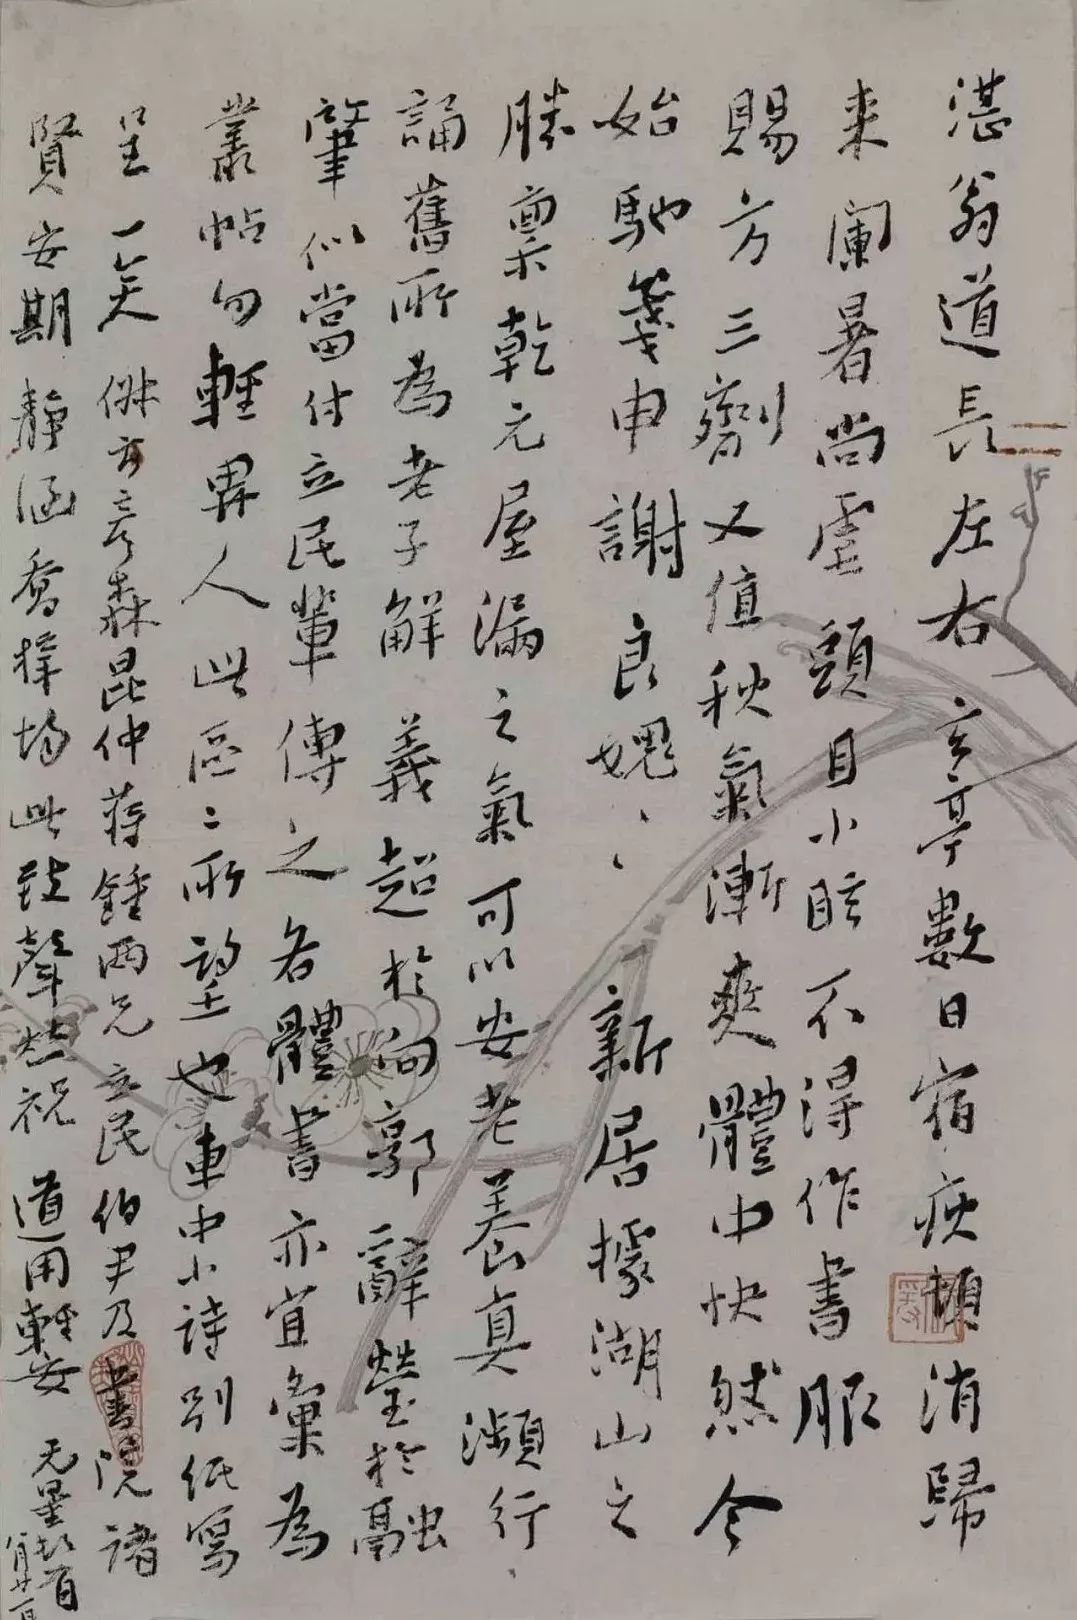 湛翁道長左右玄亭數日宿疾頓消歸
來闌暑尚虐頭目小眩不得作書服
賜方三劑又值秋氣漸爽體中快然今
始馳箋申謝良媿、、新居據湖山之
勝稟乾元屋漏之氣可以安老養真瀕行
誦舊所為老子解義超於向郭辭瑩於融
肇似當付立民輩傳之各體書亦宜彙為
叢帖勿輕畀人此區二所望也車中小詩別紙寫
呈一笑彥森昆仲蔣鍾兩兄立民伯尹及書院諸
賢安期靜涵喬梓均此致聲並祝道用輕安无量頓首